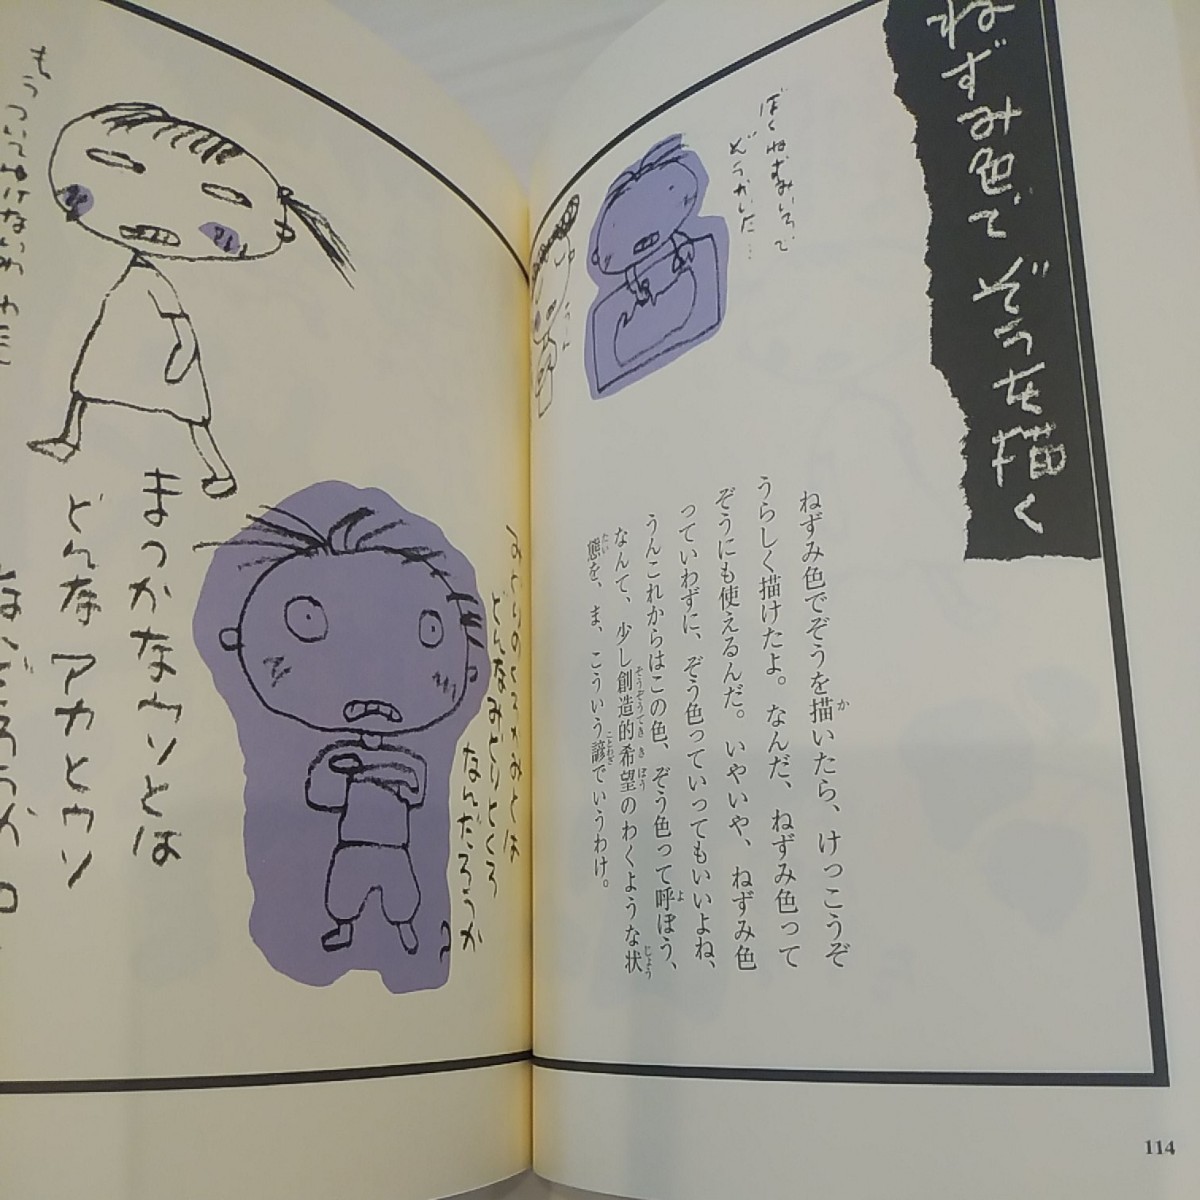 ねずみ色で ぞうを描く
ぼくねずみいろで
ぞうかいた…
うーん
ねずみ色でぞうを描いたら、けっこうぞ
うらしく描けたよ。なんだ、ねずみ色って
ぞうにも使えるんだ。いやいや、ねずみ色
っていわずに、ぞう色っていってもいいよね、
うんこれからはこの色、ぞう色って呼ぼう、
なんて、少し創造的希望のわくような状
態を、ま、こういう諺でいうわけ。
どんなみどりとくろ
なんだろうか
まっかなウソとは
どんな アカとウソ
もうついてゆけないわ わたし
114